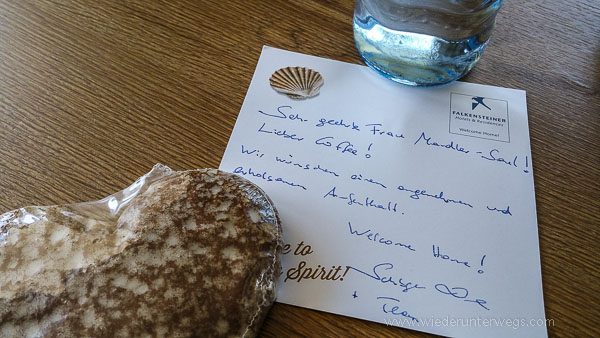 FALKENSTEINER
Hotels & Residences
Welcome Home!
Sehr geehrte Frau Mandler-Saul!
Lieber Coffee!
Wir wünschen einen angenehmen und
erholsamen Aufenthalt.
Welcome Home!
+ Team
e to
Spirit!
www.wiederunterwegs.com